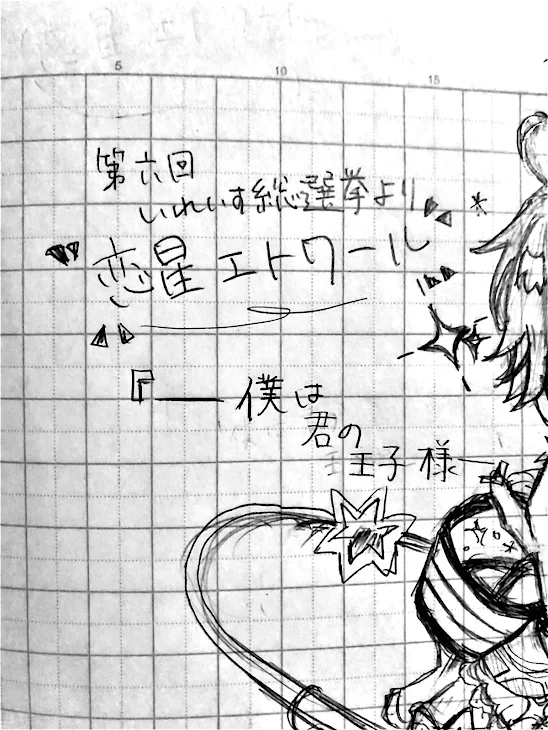 5 10 15
第六回
いれいす総選挙より
恋星エトワール
『――僕は
君の
王子様―